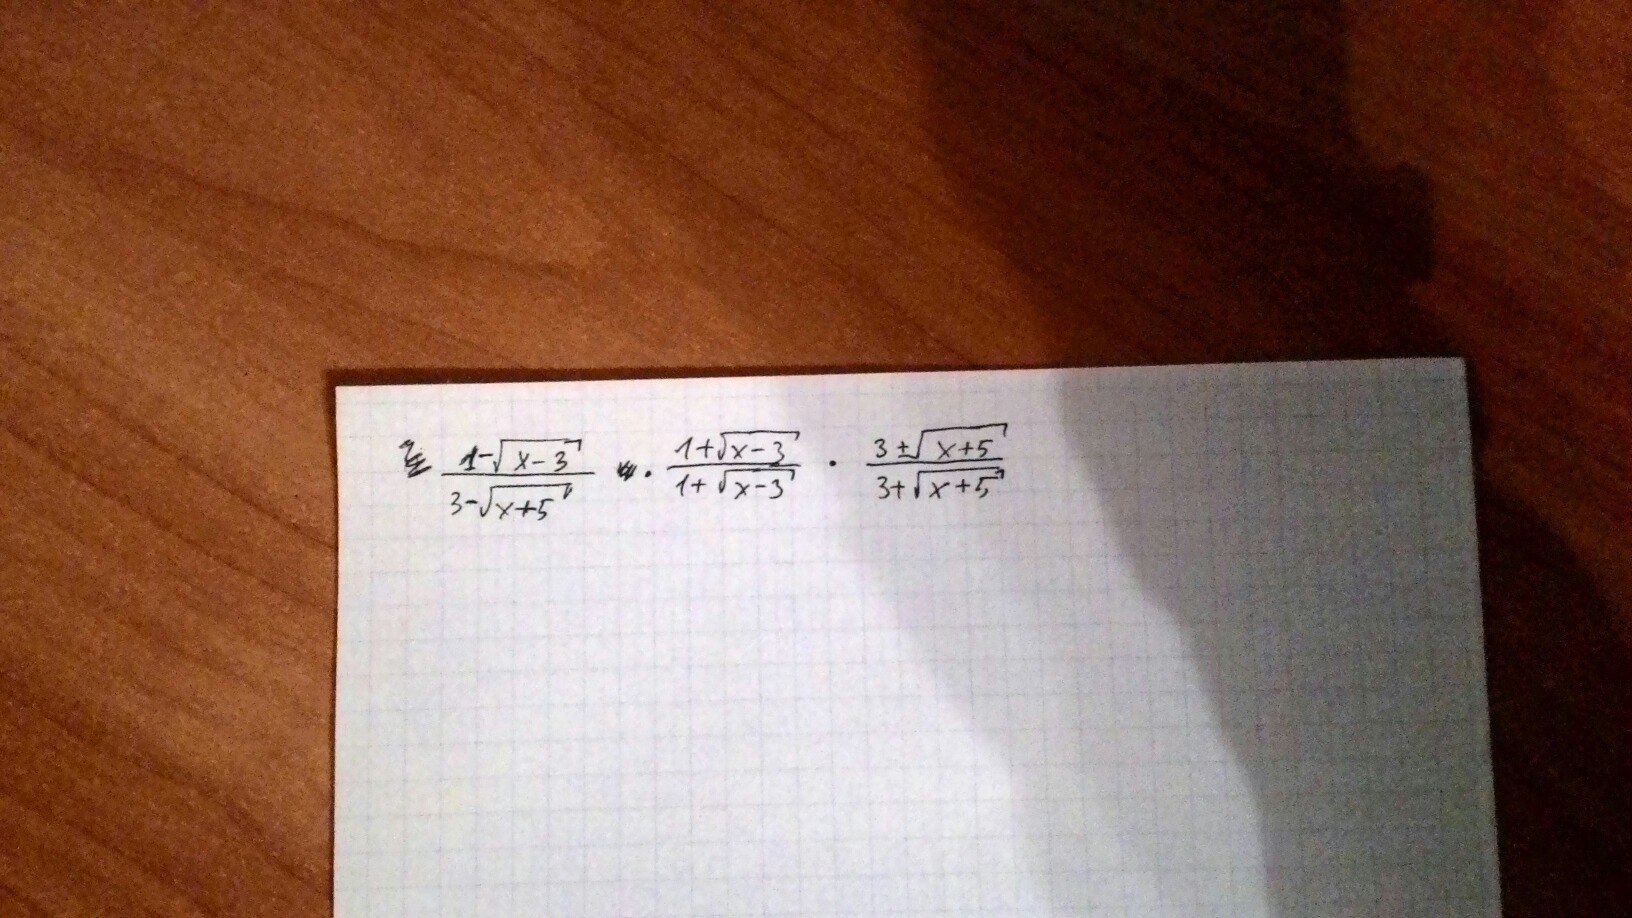 \frac{1-\sqrt{x-3}}{3-\sqrt{x+5}} \cdot \frac{1+\sqrt{x-3}}{1+\sqrt{x-3}} \cdot \frac{3+\sqrt{x+5}}{3+\sqrt{x+5}}